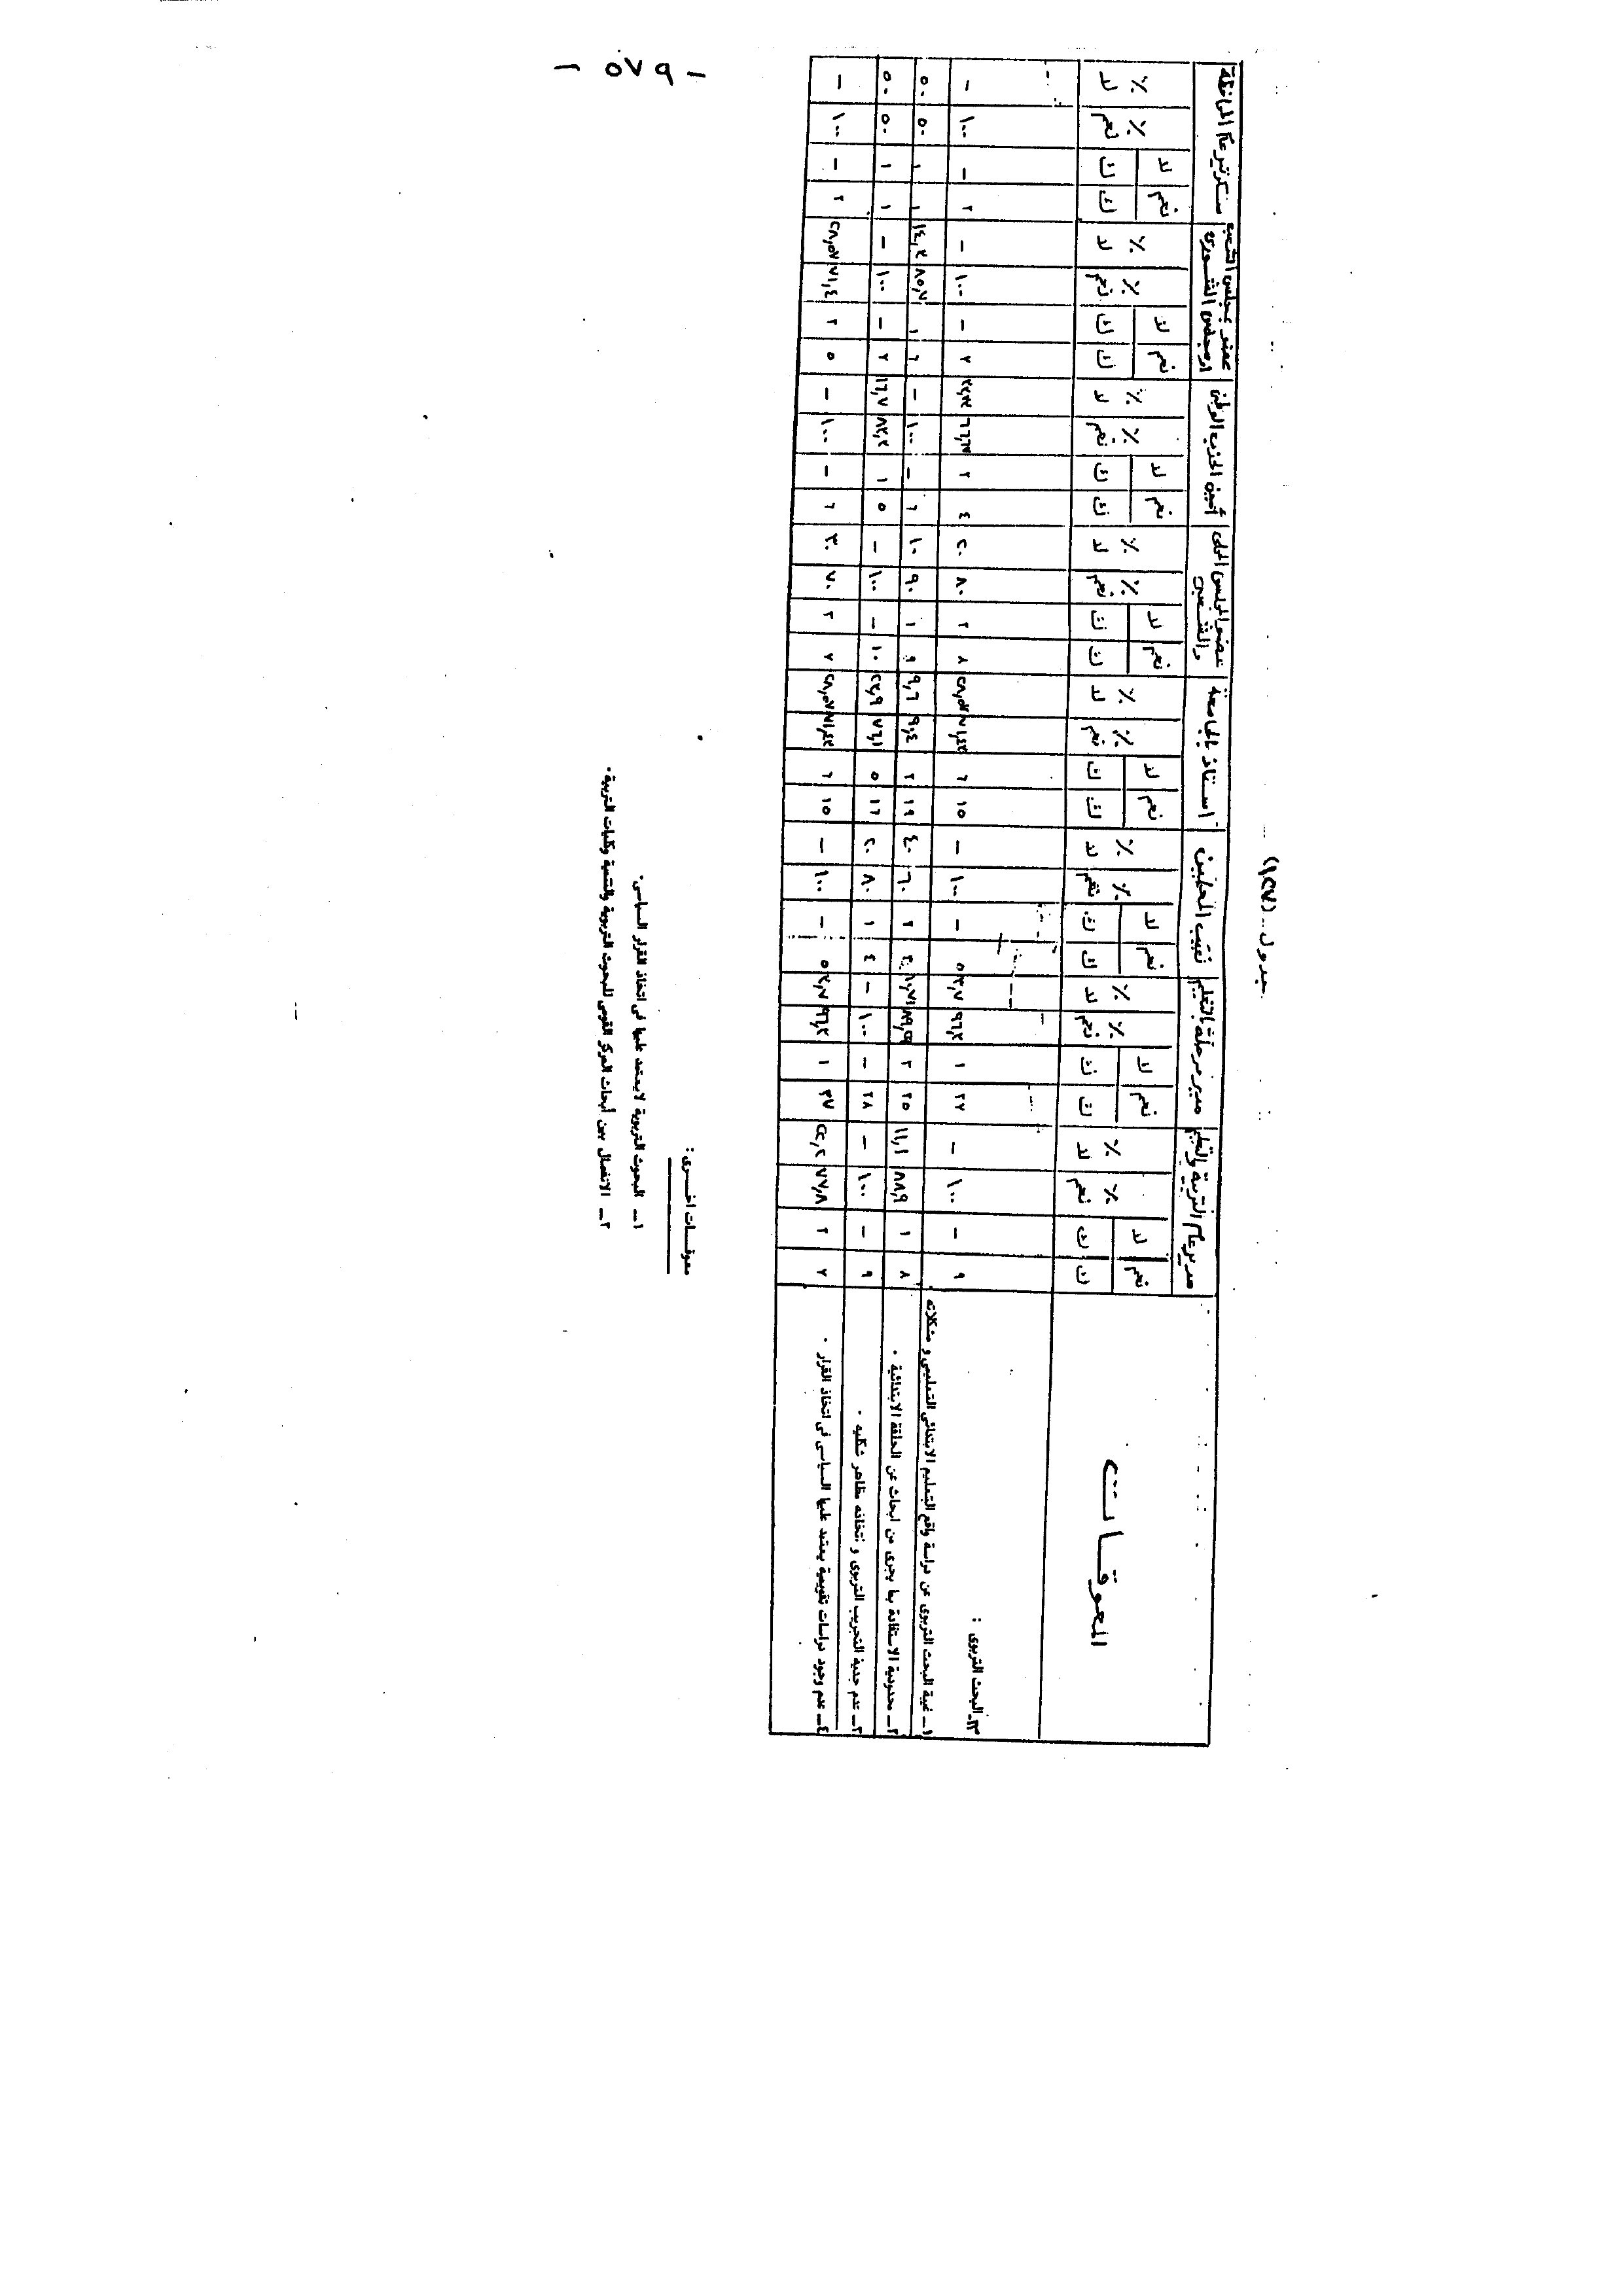 - ٥٧٩ -
جدول (١٢٧)
المعوقات
مدير عام التربية والتعليم
مدير مرحلة بالتعليم
نقيب المعلمين
استاذ بالجامعة
عضو المجلس المحلى والشعبى
أمين الحزب الوطنى
عضو مجلس الشعب او مجلس الشورى
سكرتير عام المحافظة
نعم لا ٪ نعم ٪ لا نعم لا ٪ نعم ٪ لا نعم لا ٪ نعم ٪ لا نعم لا ٪ نعم ٪ لا نعم لا ٪ نعم ٪ لا نعم لا ٪ نعم ٪ لا نعم لا ٪ نعم ٪ لا نعم لا ٪ نعم ٪ لا
ك ك ك ك ك ك ك ك ك ك ك ك ك ك ك ك
١٣ـ البحث التربوى :
١ـ غيبة البحث التربوى عن دراسة واقع التعليم الابتدائى التعليمى و مشكلاته
٩ - ١٠٠ - ٢٧ ١ ٩٦,٣ ٣,٧ ٥ - ١٠٠ - ١٥ ٦ ٧١,٤٣ ٢٨,٥٧ ٨ ٢ ٨٠ ٢٠ ٤ ٢ ٦٦,٦٧ ٣٣,٣٣ ٧ - ١٠٠ - ٢ - ١٠٠ -
٢ـ محدودية الاستفادة بما يجرى من ابحاث عن الحلقة الابتدائية ٠
٨ ١ ٨٨,٩ ١١,١ ٢٥ ٣ ٨٩,٢٩ ١٠,٧١ ٣ ٢ ٦٠ ٤٠ ١٩ ٢ ٩٠,٤ ٩,٦ ٩ ١ ٩٠ ١٠ ٦ - ١٠٠ - ٦ ١ ٨٥,٧ ١٤,٣ ١ ١ ٥٠ ٥٠
٣ـ عدم جدية التجريب التربوى و اتخاذه مظاهر شكليه ٠
٩ - ١٠٠ - ٢٨ - ١٠٠ - ٤ ١ ٨٠ ٢٠ ١٦ ٥ ٧٦,١ ٢٣,٩ ١٠ - ١٠٠ - ٥ ١ ٨٣,٣ ١٦,٧ ٧ - ١٠٠ - ١ ١ ٥٠ ٥٠
٤ـ عدم وجود دراسات تقويمية يعتمد عليها السياسى فى اتخاذ القرار ٠
٧ ٢ ٧٧,٨ ٢٢,٢ ٢٧ ١ ٩٦,٣ ٣,٧ ٥ - ١٠٠ - ١٥ ٦ ٧١,٤٣ ٢٨,٥٧ ٧ ٣ ٧٠ ٣٠ ٦ - ١٠٠ - ٥ ٢ ٧١,٤ ٢٨,٥٧ ٢ - ١٠٠ -
معوقـــات اخـــرى :
١ـ البحوث التربوية لايعتمد عليها فى اتخاذ القرار السياسى٠
٢ـ الانفصال بين أبحاث المركز القومى للبحوث التربوية والتنمية وكليات التربية ٠